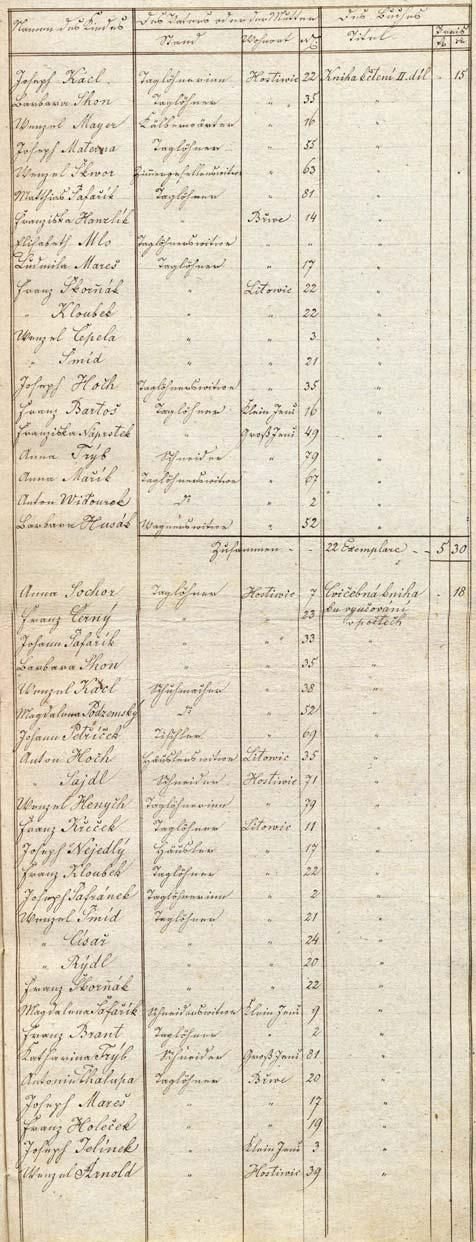 Namen des Kindes Des Vaters oder der Mutter Des Buches
Stand Wohnort № Titel Preis
fl. x
Joseph Kacl Taglöhnerinn Hostiwic 22 Kniha čtení II. díl - 15
Barbara Skon Taglöhner " 35 "
Wenzel Mayer Kälberwärter " 16 "
Joseph Materna Taglöhner " 55 "
Wenzel Skwor Zimmergesellenswitwe " 63 "
Matthias Šafařík Taglöhner " 81 "
Franziska Hanzlik " Břwe 14 "
Elisabeth Mlo Taglöhnerswitwe " " "
Ludmila Mareš Taglöhner " 17 "
Franz Skorňák " Litowic 22 "
" Kloubek " " 22 "
Wenzel Čepela " " 3 "
" Šmíd " " 21 "
Joseph Hoch Taglöhnerswitwe " 35 "
Franz Bartoš Taglöhner Klein Jenč 16 "
Franziska Náprstek " Groß Jenč 49 "
Anna Trýb Schneider " 79 "
Anna Mařík Taglöhnerswitwe " 67 "
Anton Widourek dº " 2 "
Barbara Husák Wagnerswitwe " 52 "
Zusammen - - 22 Exemplare - - 5 30
Anna Sochor Taglöhner Hostiwic 7 Cvičebná kniha - 18
Franz Černý " " 23 ku vyučování
v počtech
Johann Šafařík " " 33 "
Barbara Skon " " 35 "
Wenzel Kacl Schuhmacher " 38 "
Magdalena Podzemský dº " 52 "
Johann Petříček Tischler " 69 "
Anton Hoch Häuslerswitwe Litowic 35 "
" Sajdl Schneider Hostiwic 71 "
Wenzel Henych Taglöhnerinn " 79 "
Franz Křeček Taglöhner Litowic 11 "
Joseph Nejedlý Häusler " 17 "
Franz Kloubek Taglöhner " 22 "
Joseph Šafránek Taglöhnerinn " 2 "
Wenzel Šmíd Taglöhner " 21 "
" Císař " " 24 "
" Rýdl " " 20 "
Franz Skorňák " " 22 "
Magdalena Šafařík Schneiderswitwe Klein Jenč 9 "
Franz Brant Taglöhner " 2 "
Katharina Trýb Schneider Groß Jenč 81 "
Antonie Chalupa Taglöhner Břwe 20 "
Joseph Mareš " " 17 "
Franz Holeček " " 19 "
Joseph Jelínek " Klein Jenč 3 "
Wenzel Arnold " Hostiwic 39 "